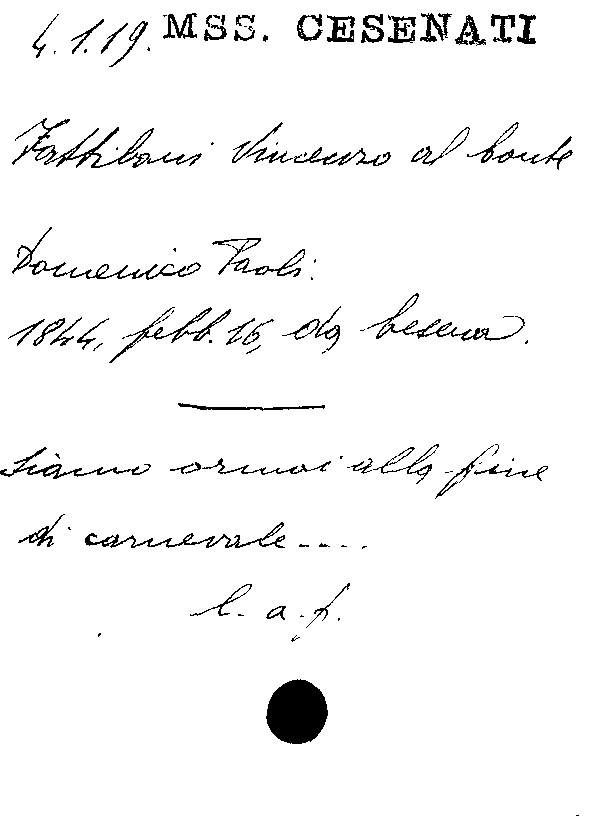 4.1.19. MSS. CESENATI
Fattiboni Vincenzo al Conte
Domenico Paoli.
1844, febb. 16, da Cesena.
Siamo ormai alla fine
di carnevale....
l. a. f.